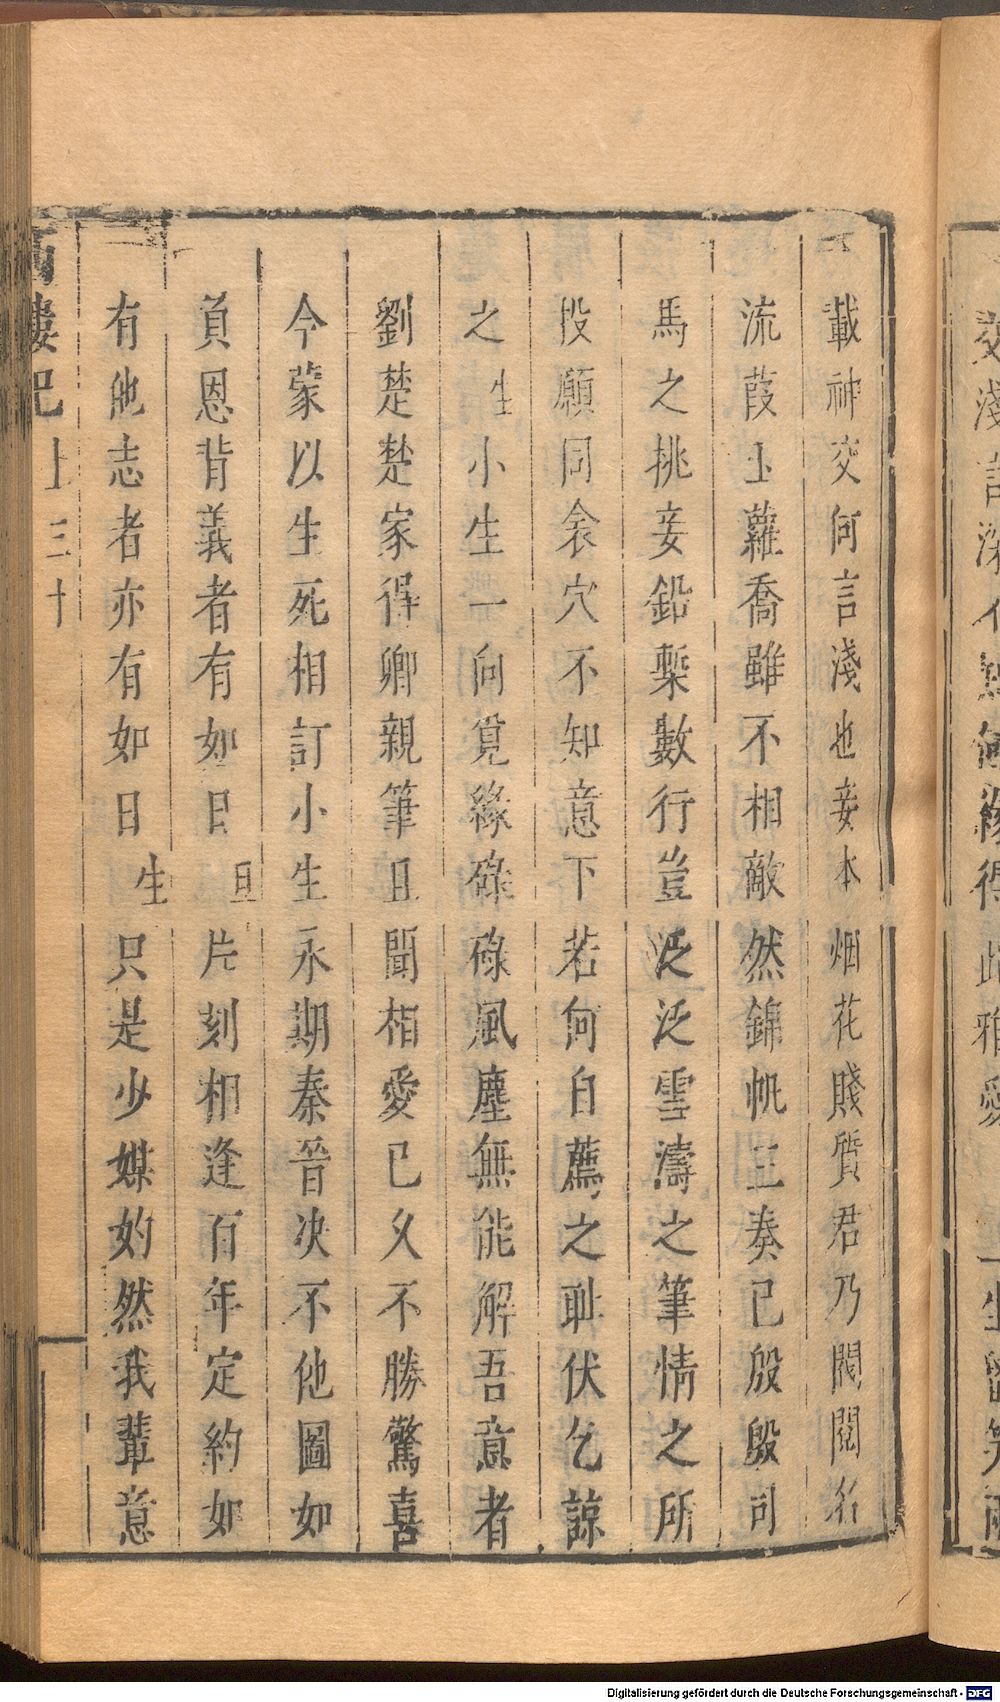 載神交何言淺也妾本烟花賤質君乃閥閱名
流葭土蘿喬雖不相敵然錦帆三奏已殷殷司
馬之挑妾鉛槧數行豈泛泛雪濤之筆情之所
投願同衾穴不知意下若何自薦之耻伏乞諒
之生小生一向覓緣碌碌風塵無能解吾意者
劉楚楚家得卿親筆且聞栢愛已久不勝驚喜
今蒙以生死相訂小生永期秦晉决不他圖如
負恩背義者有如日旦片刻相逢百年定約如
有他志者亦有如日生只是少媒妁然我輩意
西樓記 上 三十
交淺言深不
緣得此雅愛
Digitalisierung gefördert durch die Deutsche Forschungsgemeinschaft - DFG